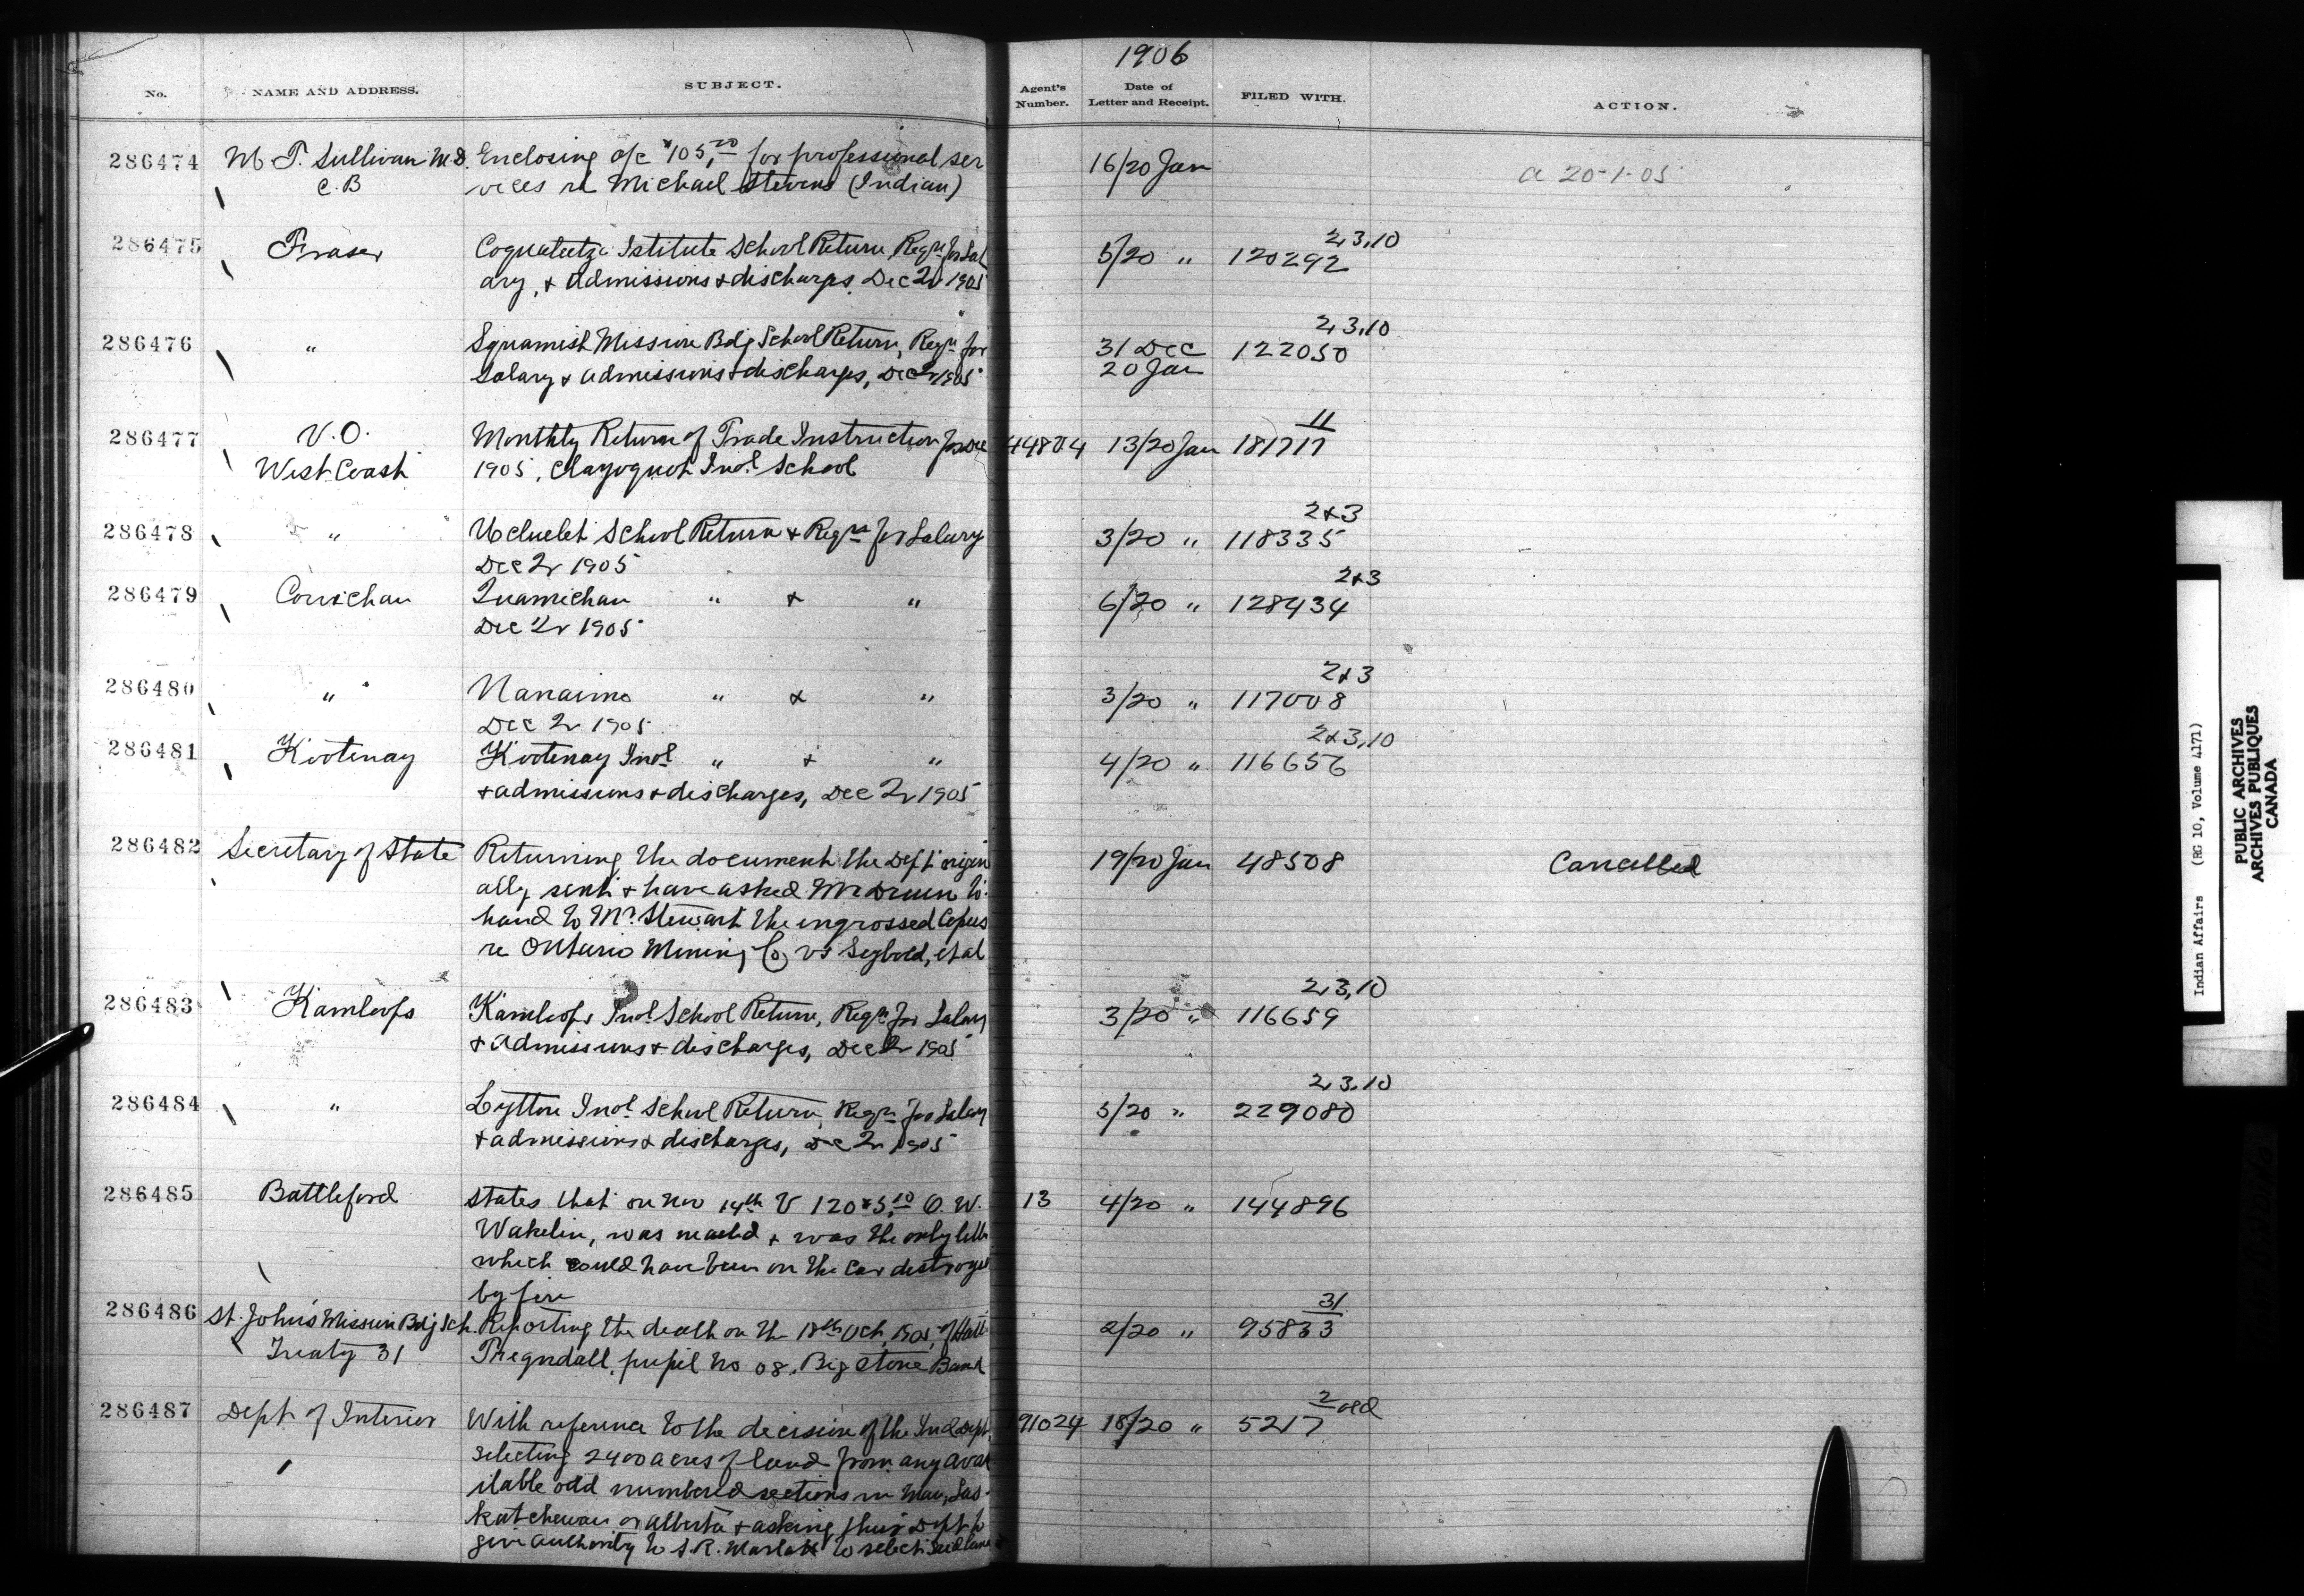 1906
No. NAME AND ADDRESS. SUBJECT. Agent's Number. Date of Letter and Receipt. FILED WITH. ACTION.
286474 M T. Sullivan M.D. Enclosing a/c $105.00 for professional ser 16/20 Jan a 20-1-05
C.B vices re Michael Stevens (Indian)
2,3,10
286475 Fraser Coqualeetza Istitute School Return, Reqn for Sal 5/20 " 120292
ary, & admissions & discharges, Dec 2r 1905
2,3,10
286476 " Squamish Mission Bdg School Return, Reqn for 31 Dec 122050
Salary & admissions & discharges, Dec 2r 1905 20 Jan
11
286477 V.O. Monthly Return of Trade Instruction for Dec 44804 13/20 Jan 181717
West Coast 1905, Clayoquot Indl School
2&3
286478 " Ucluelet School Return & Reqn for Salary 3/20 " 118335
Dec 2r 1905
2&3
286479 Cowichan Quamichan " & " 6/20 " 128434
Dec 2r 1905
2&3
286480 " Nanaimo " & " 3/20 " 117008
Dec 2r 1905
2&3,10
286481 Kootenay Kootenay Indl " & " 4/20 " 116656
& admissions & discharges, Dec 2r 1905
286482 Secretary of State Returning the document the Dept origin 19/20 Jan 48508 Cancelled
ally sent & have asked Mr to
hand to Mr. Stewart the ingrossed Copies
re Ontario Mining Co vs Seybold, et al
2,3,10
286483 Kamloops Kamloops Indl School Return, Reqn for Salary 3/20 " 116659
& admissions & discharges, Dec 2r 1905
2,3,10
286484 " Lytton Indl School Return, Reqn for Salary 5/20 " 229080
& admissions & discharges, Dec 2r 1905
286485 Battleford States that on Nov 14th V 120 O. W. 13 4/20 " 144896
Wakelin, was mailed & was the only letter
which could have been on the Car destroyed
by fire
31
286486 St. John's Mission Bdg Sch. Reporting the death on the 18th Oct, 1905, of 2/20 " 95833
Treaty 31 pupil No 08. Big Stone Band
2 old
286487 Dept of Interior With reference to the decision of the Ind Dept, 91024 18/20 " 5217
selecting 2400 acres of land from any ava
ilable odd numbered sections in Man, Sas
katchewan or Alberta & asking this Dept to
give authority to S.R. Marlatt to select said land
Indian Affairs (RG 10, Volume 4171)
PUBLIC ARCHIVES
ARCHIVES PUBLIQUES
CANADA